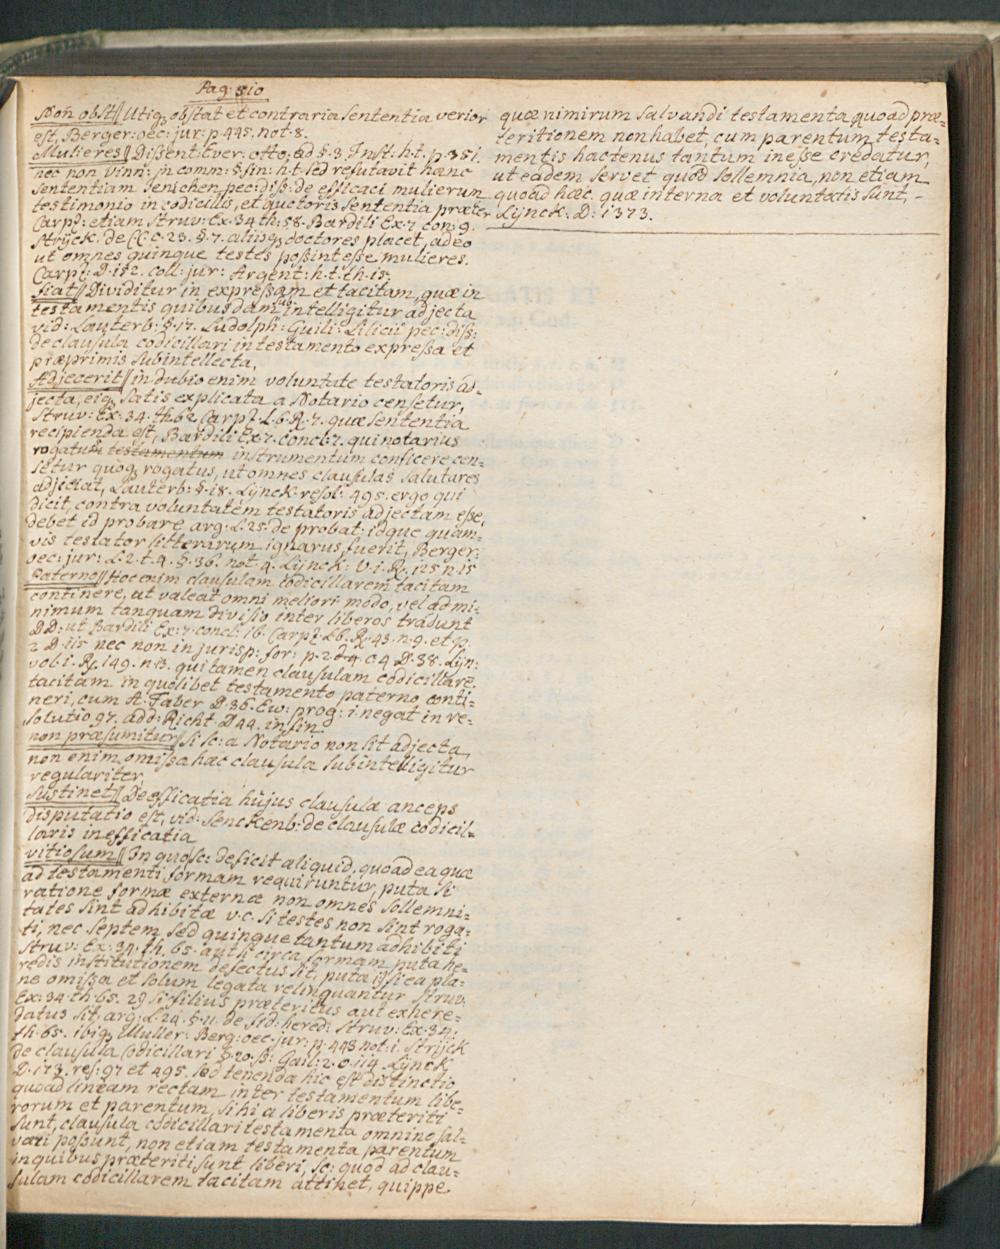 Pag: 510
Non obst// Utiq obstat et contraria sententia verior
est, Berger: oec: jur: p. 445. not. 8.
Mulieres// Dissent: Ever: Otto: ad §. 3. Inst: h.t. p. 351.
nec non Vinn: in comm: §. fin: h.t. sed refutavit hanc
sententiam Jenichen pec: diss: de efficaci mulierum
testimonio in codicillis, et auctoris sententia præter
Carpz: etiam Struv: Ex. 34 th: 58. Bardili Ex. 7. con: 9.
Stryck. de CC c. 23. §. 7. aliisq doctores placet, adeo
ut omnes quinque testes possint esse mulieres.
Carpz: D. 152. coll: jur: Argent: h.t. th. 15.
fiat// Dividitur in expressam et tacitam, quæ in
testamentis quibusdam subintelligitur adjecta
vid: Lauterb: §. 17. Ludolph: Guili: Lilicii pec: diss:
de clausula codicillari in testamento expressa et
præprimis subintellecta,
Adjecerit// in dubio enim voluntate testatoris ad=
jecta, eiq satis explicata a Notario censetur,
Struv: Ex: 34. th. 62 Carpz. L. 6. R. 7. quæ sententia
recipienda est, Bardili Ex. 7. concl: 7. qui notarius
rogatum testamentum instrumentum conficere cen=
setur quoq rogatus, ut omnes clausulas salutares
adjiciat, Lauterb: §. 18. Lynck. resol: 495. ergo qui
dicit, contra voluntatem testatoris adjectam esse,
debet id probare arg. L. 25. de probat: idque quam=
vis testator litterarum ignarus fuerit, Berger:
oec: jur: L. 2. t. 4. §. 36. not. 4. Lynck: V. 1. R. 125 n. 15
Paterno// Hoc enim clausulam codicillarem tacitam
continere, ut valeat omni meliori modo, vel ad mi=
nimum tanquam divisio inter liberos tradunt
DD: ut Bardili Ex: 7. concl: 16. Carpz L. 6. R. 43. n. 9. et
2. D. 115 nec non in jurisp: for: p. 2 c. 4 D. 38. Lyn:
vol: 1. R. 149. n. 3. qui tamen clausulam codicillare
tacitam in quolibet testamento paterno conti=
neri, cum A. Faber D. 36. Ew: prog: 1. negat in re=
solutio 97. add: Richt. D. 44. in fin.
non præsumitur// Si sc: a Notario non sit adjecta,
non enim omissa hæc clausula subintelligitur
regulariter,
Sustinet// De efficatia hujus clausulæ anceps
disputatio est, vid: Senckenb: de clausulæ codicil=
laris inefficatia
vitiosum// In quo sc: deficit aliquid, quoad ea quæ
ad testamenti formam requiruntur, puta si
ratione formæ externæ non omnes sollemni=
tates sint adhibitæ v.c. si testes non sint roga=
ti, nec septem sed quinque tantum adhibiti
Struv: Ex: 34. th. 65. aut si circa formam puta he=
redis institutionem defectus sit, puta 1) si ea pla=
ne omissa et solum legata relinquantur Struv.
Ex: 34 th. 65. 2) si filius præteritus aut exhere=
datus sit. arg. L. 24. §. 11. de fid: hered: Struv: Ex. 34.
th. 65. ibiq Muller: Berg: oec. jur: p. 443 not: 1. Stryck
de clausula codicillari §. 20. Gail: 2. o. 114. Lynck
D. 173. res: 97 et 495. sed tenenda hic est distinctio
quoad lineam rectam inter testamentum libe=
rorum et parentum, si hi a liberis præteriti
sunt, clausula codicillari testamenta omnino sal=
vari possunt, non etiam testamenta parentum
in quibus præteriti sunt liberi, sc: quod ad clau=
sulam codicillarem tacitam attinet, quippe
quæ nimirum salvandi testamenta quoad præ=
teritionem non habet, cum parentum testa=
mentis hactenus tantum inesse credatur,
ut eadem servet quod sollemnia, non etiam
quoad hæc quæ interna et voluntatis sunt, -
Lynck. D: 1373.